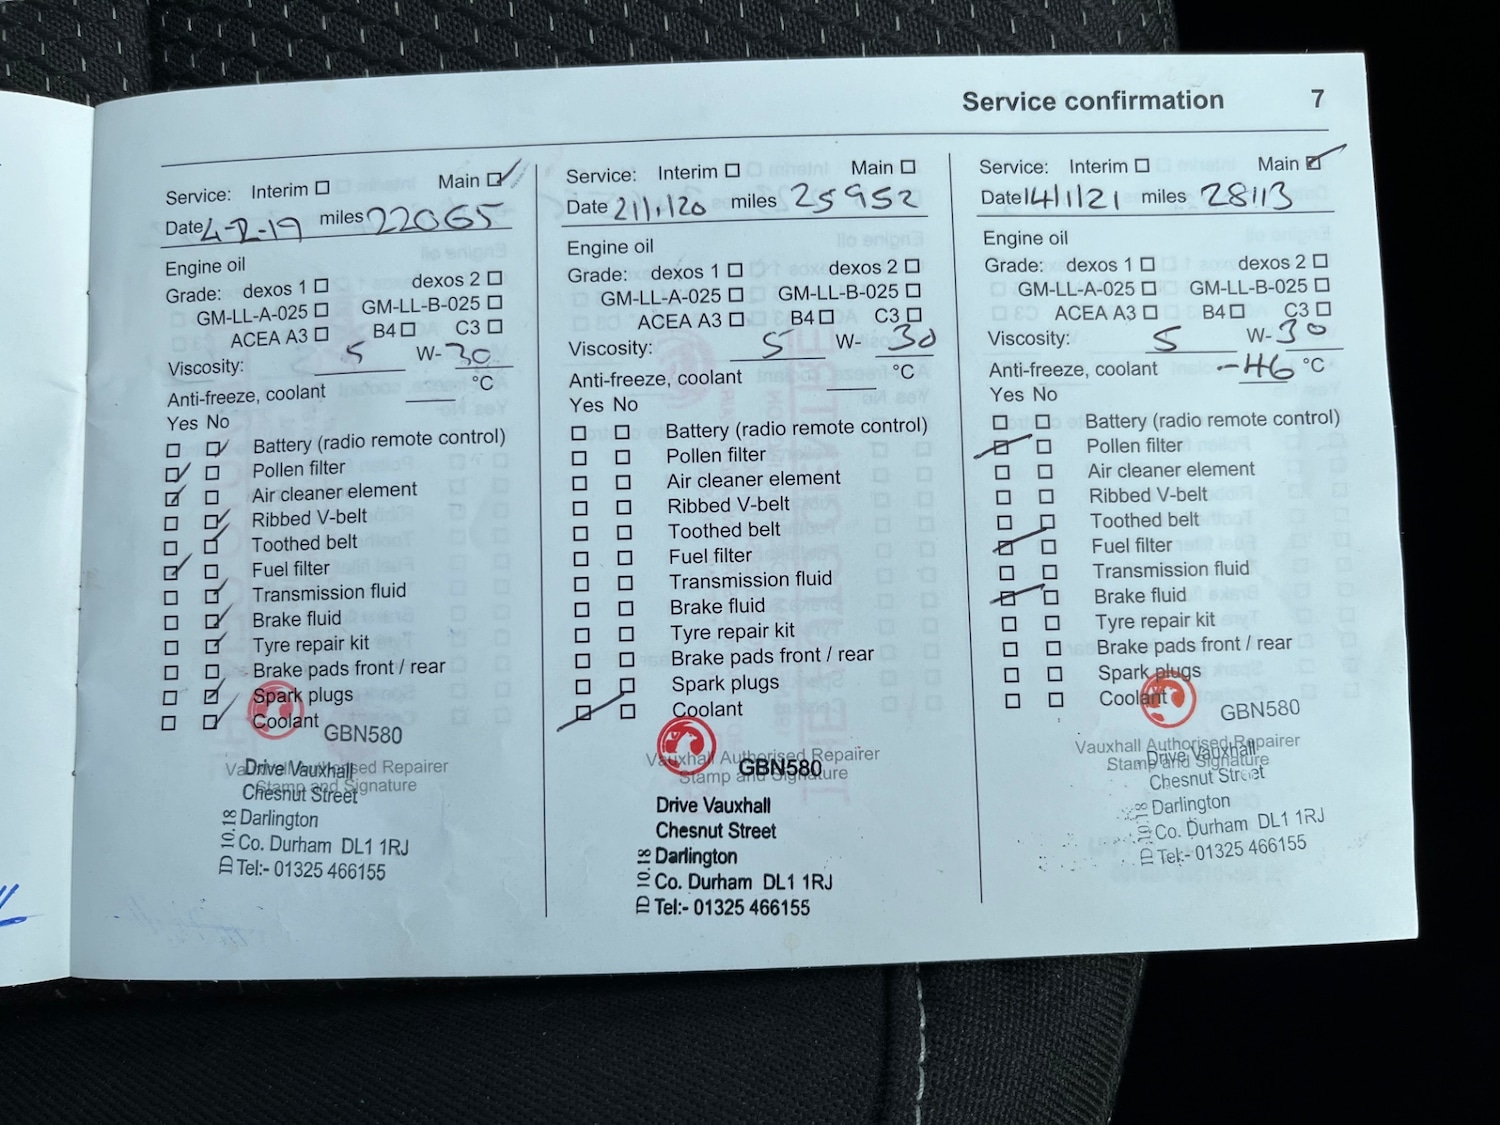 Service confirmation 7
Service: Interim Main
Date 4-2-19 miles 22065
Engine oil
Grade: dexos 1 dexos 2
GM-LL-A-025 GM-LL-B-025
ACEA A3 B4 C3
Viscosity: 5 W- 30
Anti-freeze, coolant °C
Yes No
Battery (radio remote control)
Pollen filter
Air cleaner element
Ribbed V-belt
Toothed belt
Fuel filter
Transmission fluid
Brake fluid
Tyre repair kit
Brake pads front / rear
Spark plugs
Coolant
GBN580
Vauxhall Authorised Repairer
Stamp and Signature
Drive Vauxhall
Chesnut Street
Darlington
Co. Durham DL1 1RJ
Tel:- 01325 466155
ID 10.18
Service: Interim Main
Date 21/1/20 miles 25952
Engine oil
Grade: dexos 1 dexos 2
GM-LL-A-025 GM-LL-B-025
ACEA A3 B4 C3
Viscosity: 5 W- 30
Anti-freeze, coolant °C
Yes No
Battery (radio remote control)
Pollen filter
Air cleaner element
Ribbed V-belt
Toothed belt
Fuel filter
Transmission fluid
Brake fluid
Tyre repair kit
Brake pads front / rear
Spark plugs
Coolant
Vauxhall Authorised Repairer
GBN580
Stamp and Signature
Drive Vauxhall
Chesnut Street
Darlington
Co. Durham DL1 1RJ
Tel:- 01325 466155
ID 10.18
Service: Interim Main
Date 14/1/21 miles 28113
Engine oil
Grade: dexos 1 dexos 2
GM-LL-A-025 GM-LL-B-025
ACEA A3 B4 C3
Viscosity: 5 W- 30
Anti-freeze, coolant -46 °C
Yes No
Battery (radio remote control)
Pollen filter
Air cleaner element
Ribbed V-belt
Toothed belt
Fuel filter
Transmission fluid
Brake fluid
Tyre repair kit
Brake pads front / rear
Spark plugs
Coolant
GBN580
Vauxhall Authorised Repairer
Stamp and Signature
Drive Vauxhall
Chesnut Street
Darlington
Co. Durham DL1 1RJ
Tel:- 01325 466155
ID 10.18